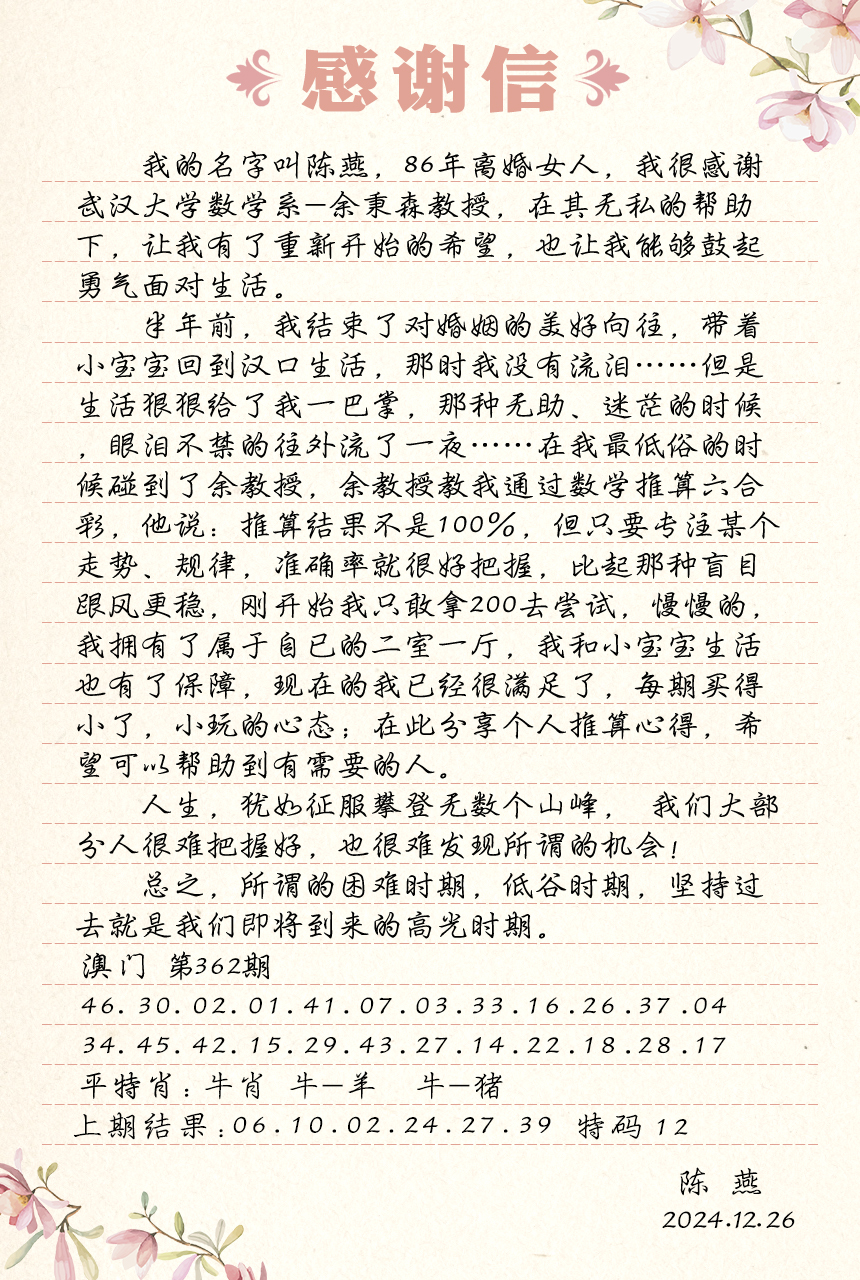 感谢信
我的名字叫陈燕，86年离婚女人，我很感谢
武汉大学数学系—余秉森教授，在其无私的帮助
下，让我有了重新开始的希望，也让我能够鼓起
勇气面对生活。
半年前，我结束了对婚姻的美好向往，带着
小宝宝回到汉口生活，那时我没有流泪……但是
生活狠狠给了我一巴掌，那种无助、迷茫的时候
，眼泪不禁的往外流了一夜……在我最低俗的时
候碰到了余教授，余教授教我通过数学推算六合
彩，他说：推算结果不是100%，但只要专注某个
走势、规律，准确率就很好把握，比起那种盲目
跟风更稳，刚开始我只敢拿200去尝试，慢慢的，
我拥有了属于自已的二室一厅，我和小宝宝生活
也有了保障，现在的我已经很满足了，每期买得
小了，小玩的心态；在此分享个人推算心得，希
望可以帮助到有需要的人。
人生，犹如征服攀登无数个山峰， 我们大部
分人很难把握好，也很难发现所谓的机会！
总之，所谓的困难时期，低谷时期，坚持过
去就是我们即将到来的高光时期。
澳门 第362期
46.30.02.01.41.07.03.33.16.26.37.04
34.45.42.15.29.43.27.14.22.18.28.17
平特肖：牛肖 牛—羊 牛—猪
上期结果：06.10.02.24.27.39 特码 12
陈 燕
2024.12.26